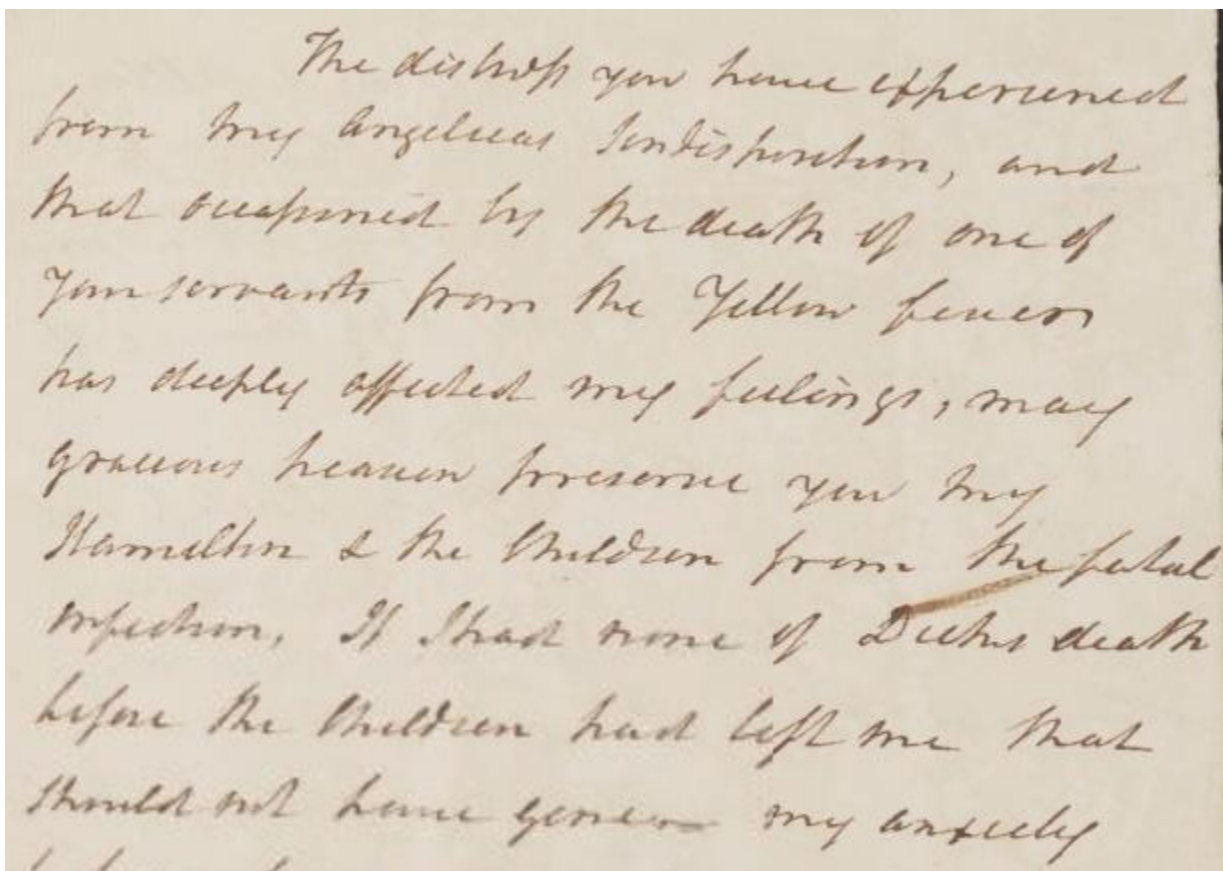 The distress you have experienced
from my Angelicas Indisposition, and
that occasioned by the death of one of
your servants from the Yellow fever
has deeply affected my feelings, may
gracious heaven preserve you my
Hamilton & the Children from the fatal
infection, If I had none of death
before the Children had left me that
should not have gone my anxiety